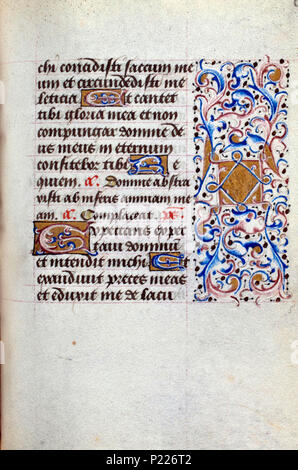 chi conscidisti saccum me
um et circumdedisti me
leticia Et cantet
tibi gloria mea et non
compungar domine de
us meus in eternum
confitebor tibi Re
quiem. a. Domine abstra
xisti ab inferis animam me
am. a. Complaceat. ps.
Expectans expec
taui dominum
et intendit michi Et
exaudiuit preces meas
et eduxit me de lacu
P226T2